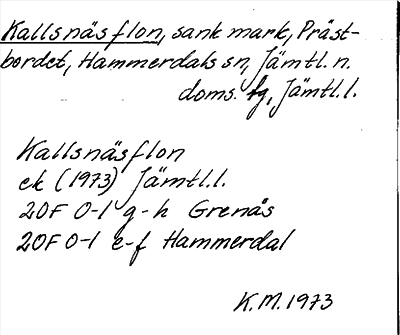 Kallsnäsflon, sank mark, Präst-
bordet, Hammerdals sn, Jämtl. n.
doms. fg, Jämtl. l.
Kallsnäsflon
ek (1973) Jämtl.l.
20F 0-1 g-h Grenås
20F 0-1 e-f Hammerdal
K.M. 1973